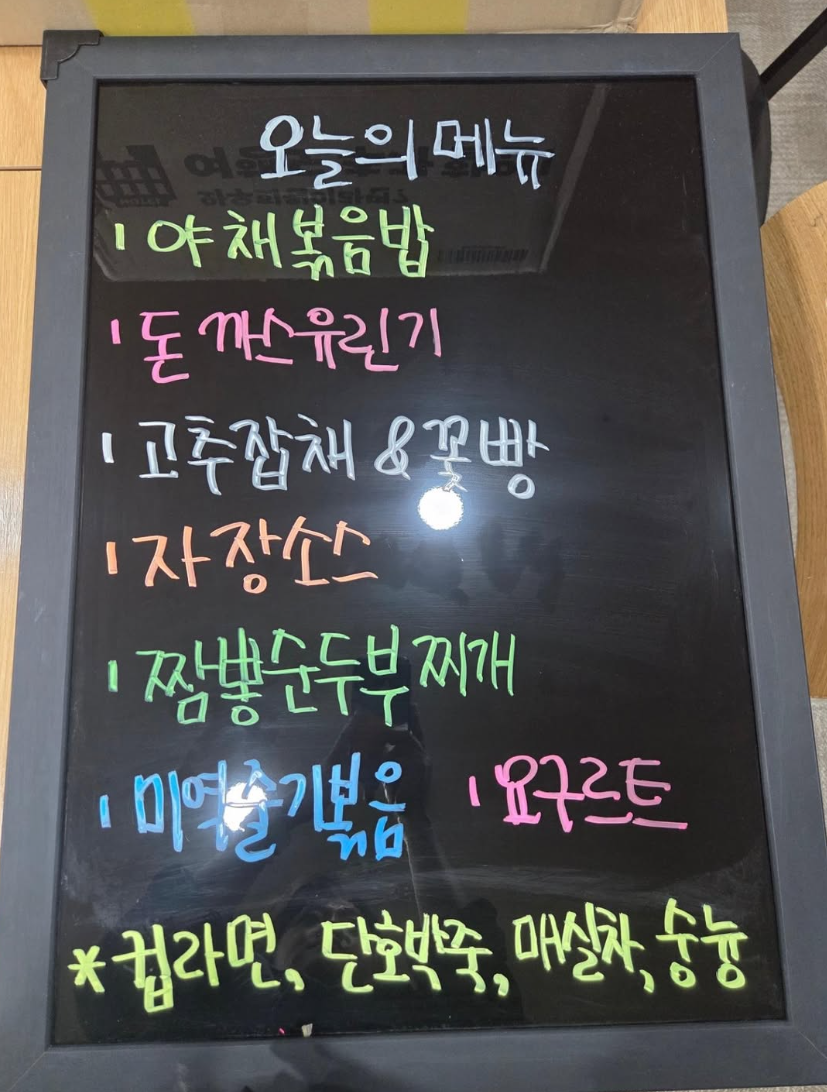 오늘의 메뉴
ı 야채볶음밥
ı 돈까스유린기
ı 고추잡채 & 꽃빵
ı 자장소스
ı 짬뽕순두부찌개
ı 미역줄기볶음 ı 요구르트
* 컵라면, 단호박죽, 매실차, 숭늉